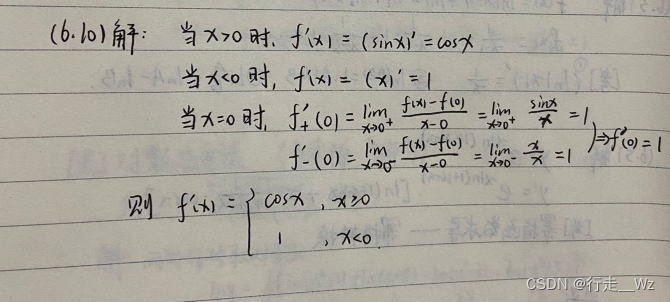 (6.10)解: 当x>0时, f'(x) = (sinx)' = cosx
当x<0时, f'(x) = (x)' = 1
当x=0时, f'₊(0) = lim_{x→0⁺} \frac{f(x)-f(0)}{x-0} = lim_{x→0⁺} \frac{sinx}{x} = 1
f'₋(0) = lim_{x→0⁻} \frac{f(x)-f(0)}{x-0} = lim_{x→0⁻} \frac{x}{x} = 1 } ⇒ f'(0) = 1
则 f'(x) = { cosx , x≥0
1 , x<0.
CSDN @行走__Wz